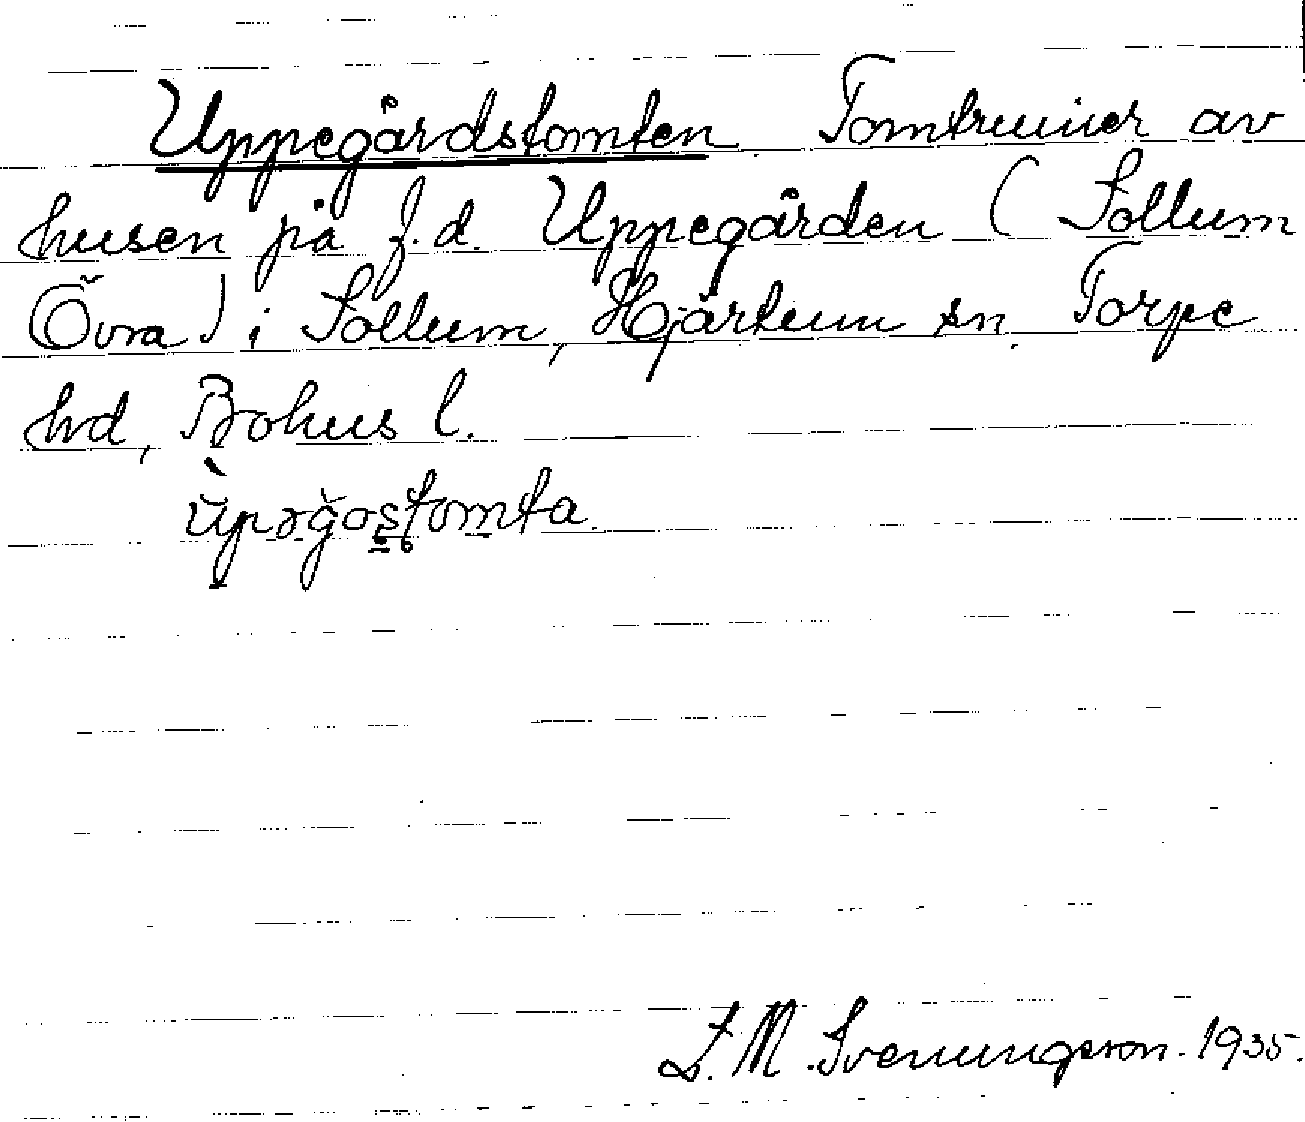 Uppegårdstomten Tomtruiner av
husen på f.d. Uppegården ( Sollum
Övra ) i Sollum, Hjärtum sn. Torpe
hd, Bohus l.
ùpəgostomta.
L. M. Svenungsson. 1935.